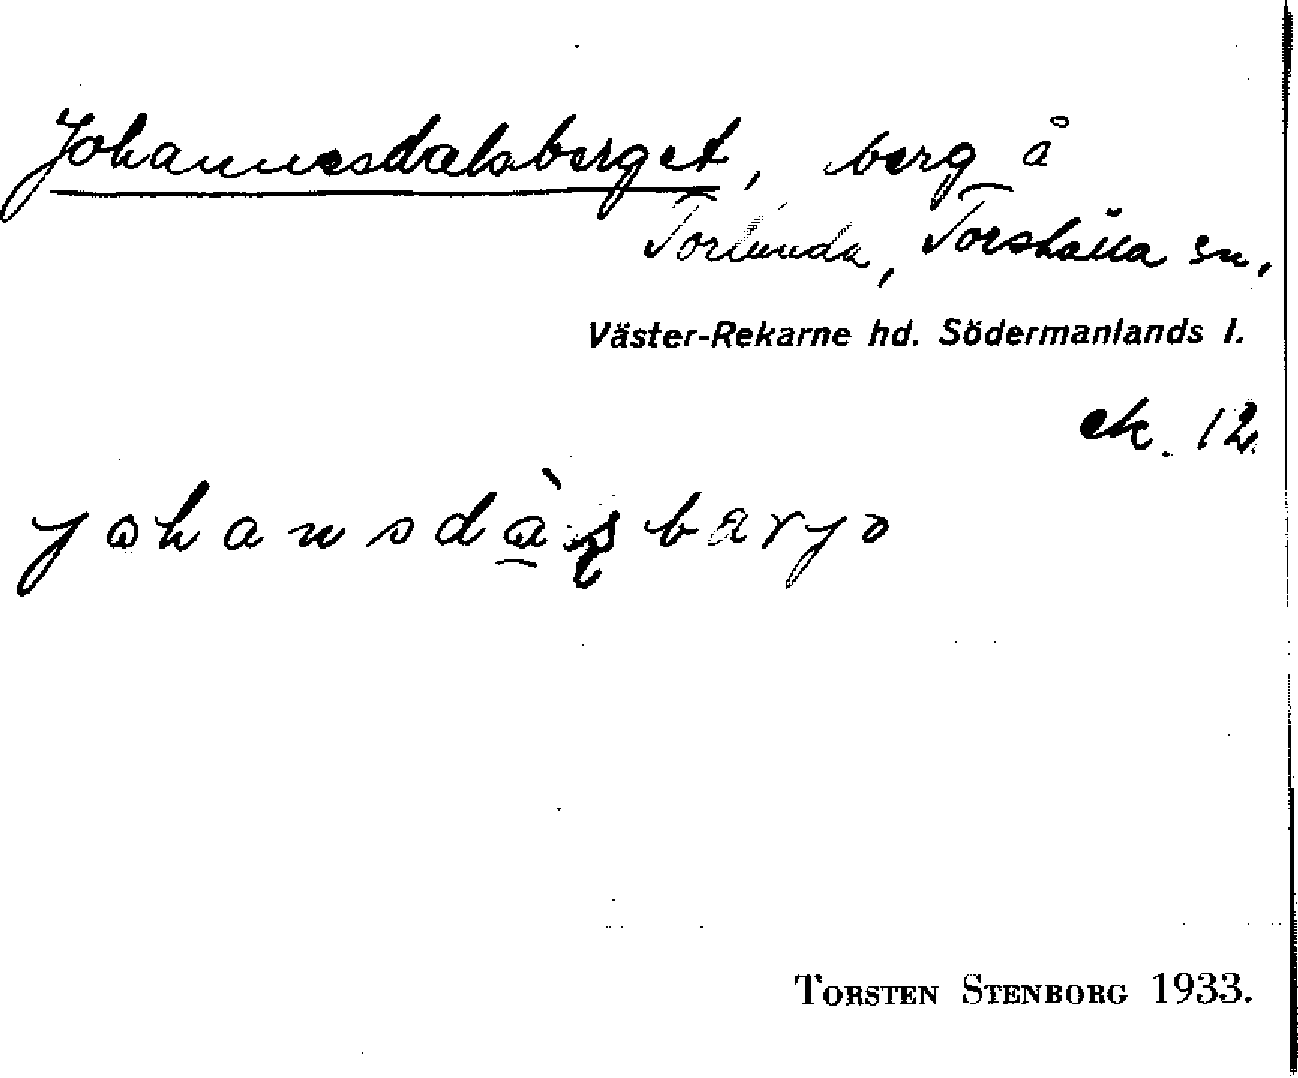 Johannesdalsberget, berg å
Torlunda, Torshälla sn,
Väster-Rekarne hd. Södermanlands l.
ek. 12
TORSTEN STENBORG 1933.